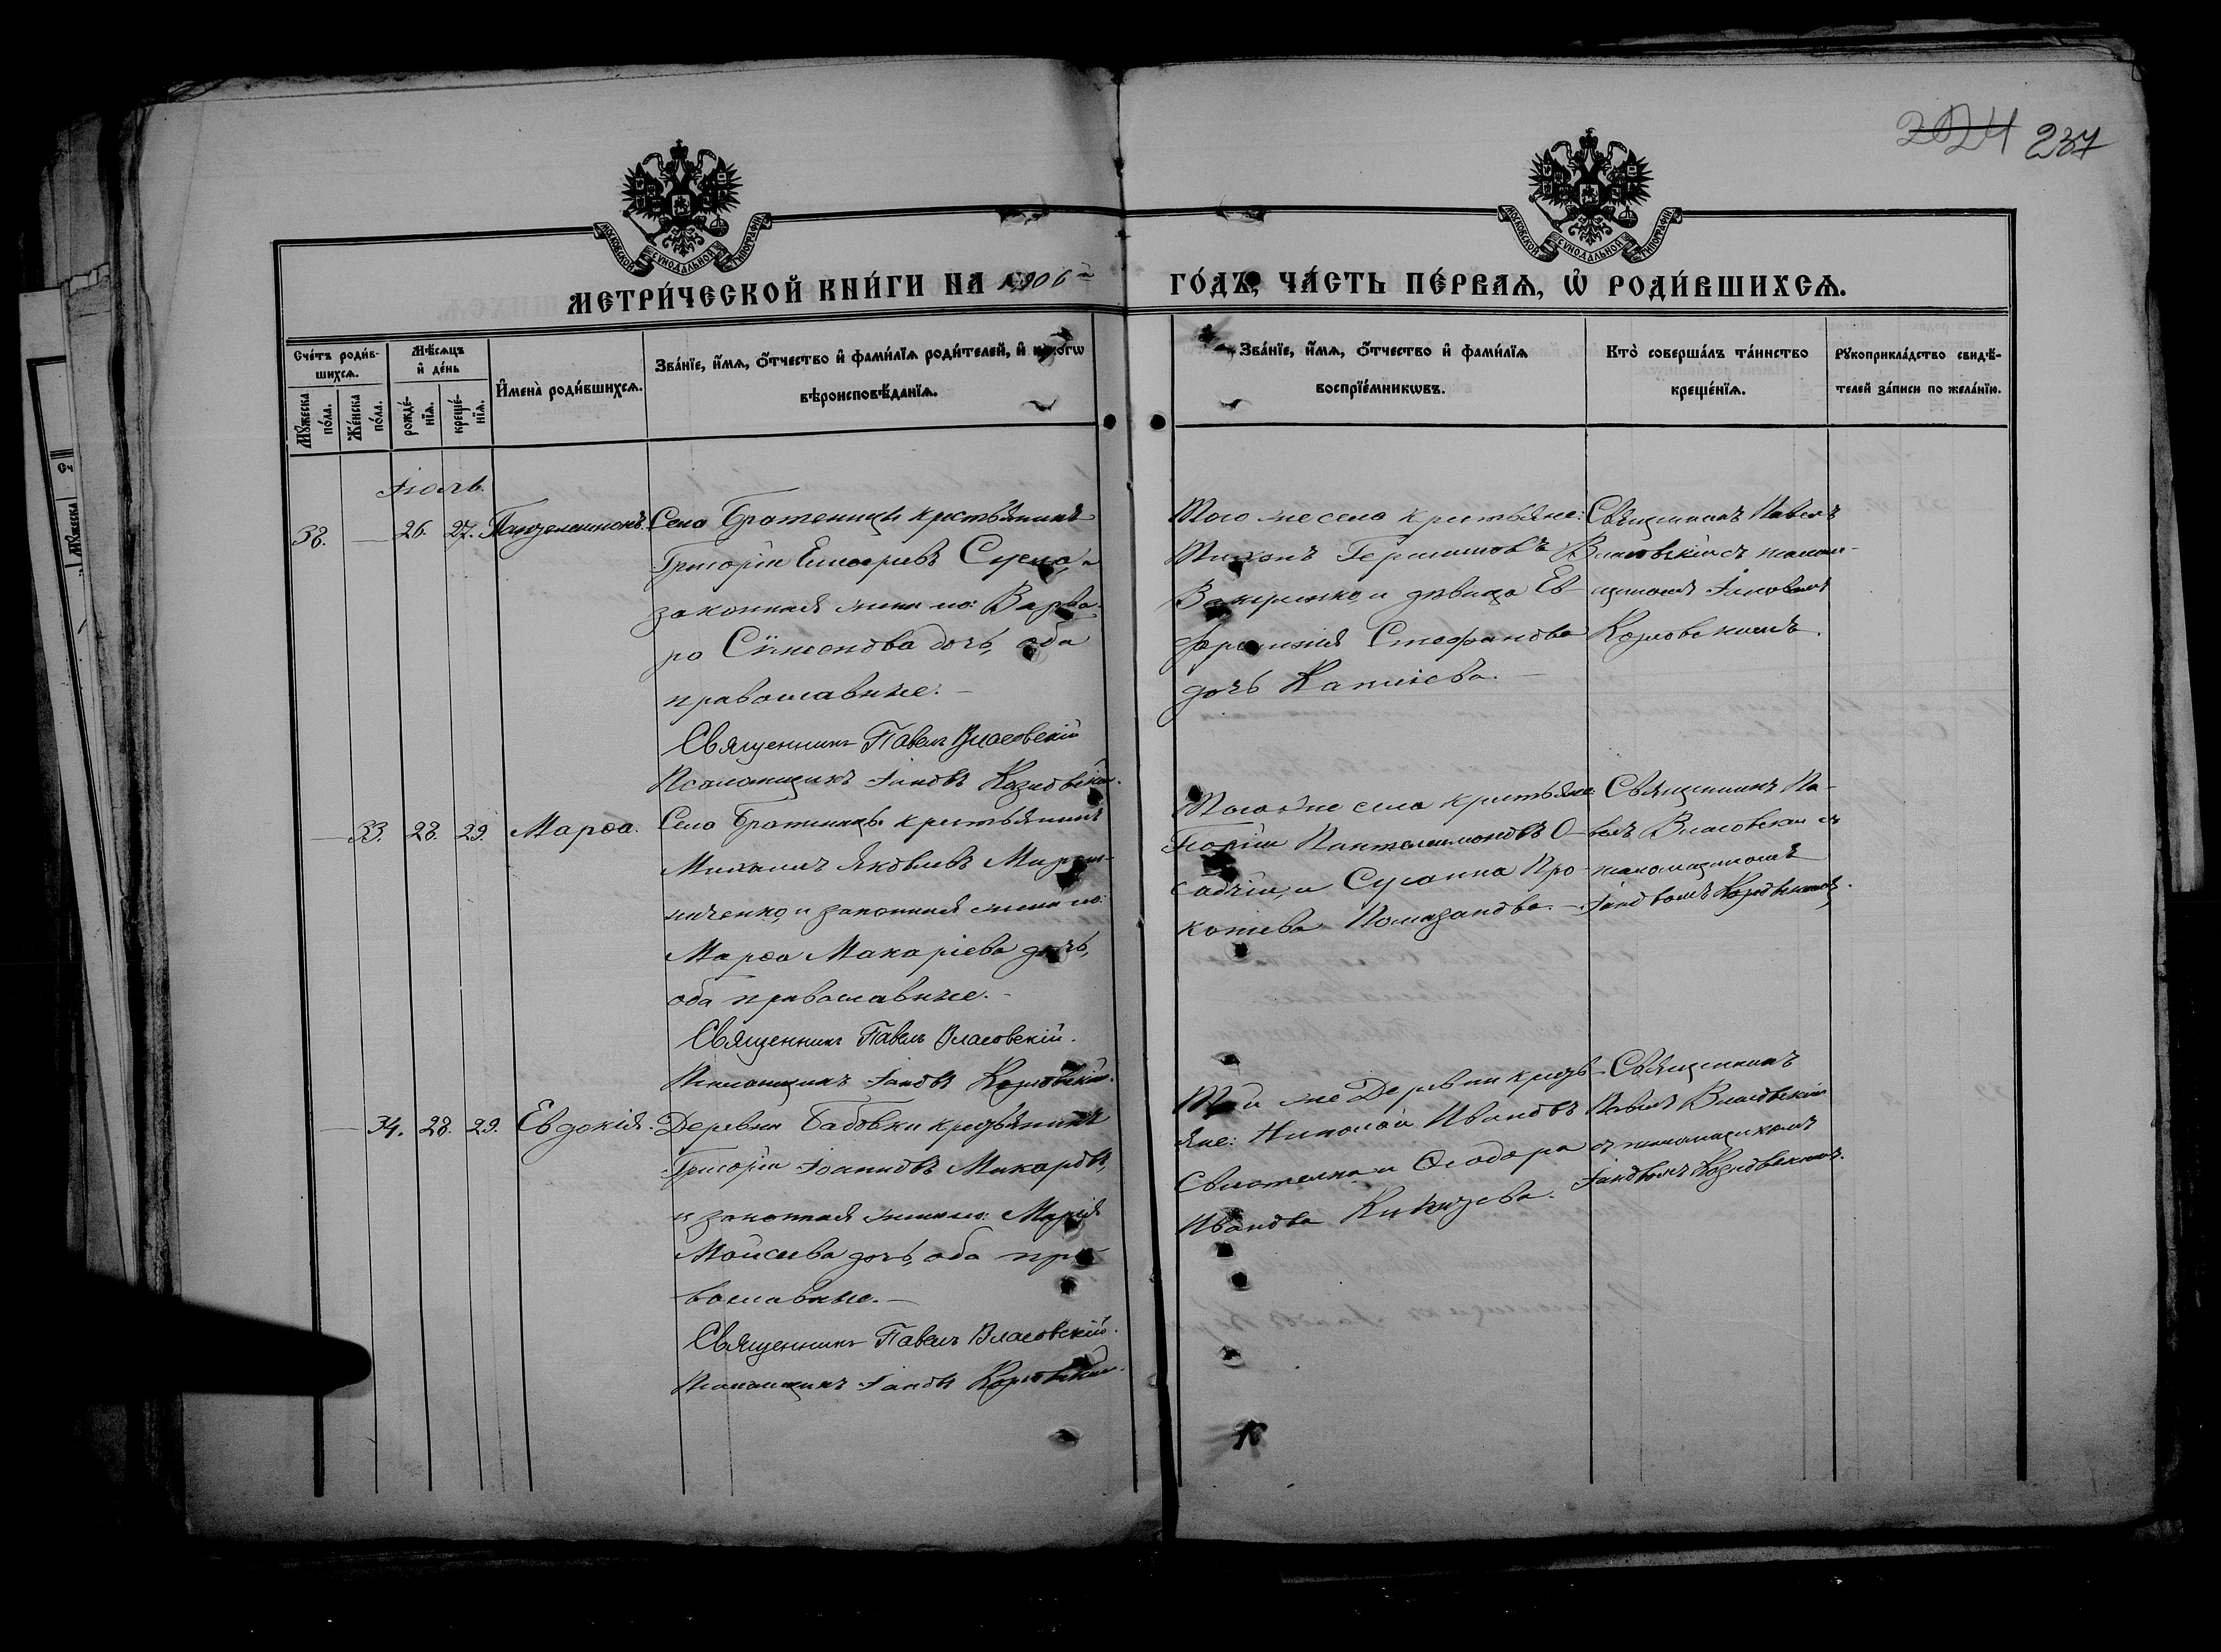 2024 237
МОСКОВСКОЙ СѴНОДАЛЬНОЙ ТИПОГРАФІИ
МОСКОВСКОЙ СѴНОДАЛЬНОЙ ТИПОГРАФІИ
МЕТРИ́ЧЕСКОЙ КНИ́ГИ НА 1906 ГО́ДЪ, ЧА́СТЬ ПЕ́РВАѦ, Ѡ҆ РОДИ́ВШИХСѦ.
Сче́тъ роди́в-
шихсѧ.
Мꙋ́жеска по́ла.
Же́нска по́ла.
Мѣ́сѧцъ и҆ де́нь
рожде́-нїѧ.
креще́-нїѧ.
И҆мена̀ роди́вшихсѧ.
Зва́нїе, и҆́мѧ, ѻ҆́тчество и҆ фами́лїѧ роди́телей, и҆ како́гѡ
вѣроисповѣ́данїѧ.
Зва́нїе, и҆́мѧ, ѻ҆́тчество и҆ фами́лїѧ
воспрїе́мникѡвъ.
Кто̀ соверша́лъ та́инство
креще́нїѧ.
Рꙋкоприкла́дство свидѣ́-
телей за́писи по жела́нїю.
Іюль.
38. — 26. 27. Пантелеимонъ.
Села Братеницы крестьянинъ
Григорій
законная жена его: Варва-
ра Симеонова дочь, оба
православные. —
Священникъ Павелъ Власовскій
Псаломщикъ Іаковъ Козловскій.
Того же села крестьяне:
Тихонъ
и дѣвица Ев-
фросинія Стефанова
дочь —
Священникъ Павелъ
Власовскій съ псалом-
щикомъ Іаковомъ
Козловскимъ.
— 33. 28. 29. Марѳа.
Села Братеницы крестьянинъ
Михаилъ Яковлевъ
и законная жена его:
Марѳа Макаріева дочь,
оба православные. —
Священникъ Павелъ Власовскій.
Псаломщикъ Іаковъ Козловскій.
Того же села крестьяне:
Георгій Пантелеимоновъ О-
садчій, и Сусанна Про-
копіева Помазанова. —
Священникъ Па-
велъ Власовскій съ
псаломщикомъ
Іаковомъ Козловскимъ.
— 34. 28. 29. Евдокія.
Деревни Бабовки крестьянинъ
Григорій Іоанновъ Макаровъ,
и законная жена его: Марія
Моисеева дочь, оба пра-
вославные. —
Священникъ Павелъ Власовскій.
Псаломщикъ Іаковъ Козловскій.
Той же Деревни кресть-
яне: Николай Ивановъ
и Ѳеодора
Иванова
Священникъ
Павелъ Власовскій
съ псаломщикомъ
Іаковомъ Козловскимъ.